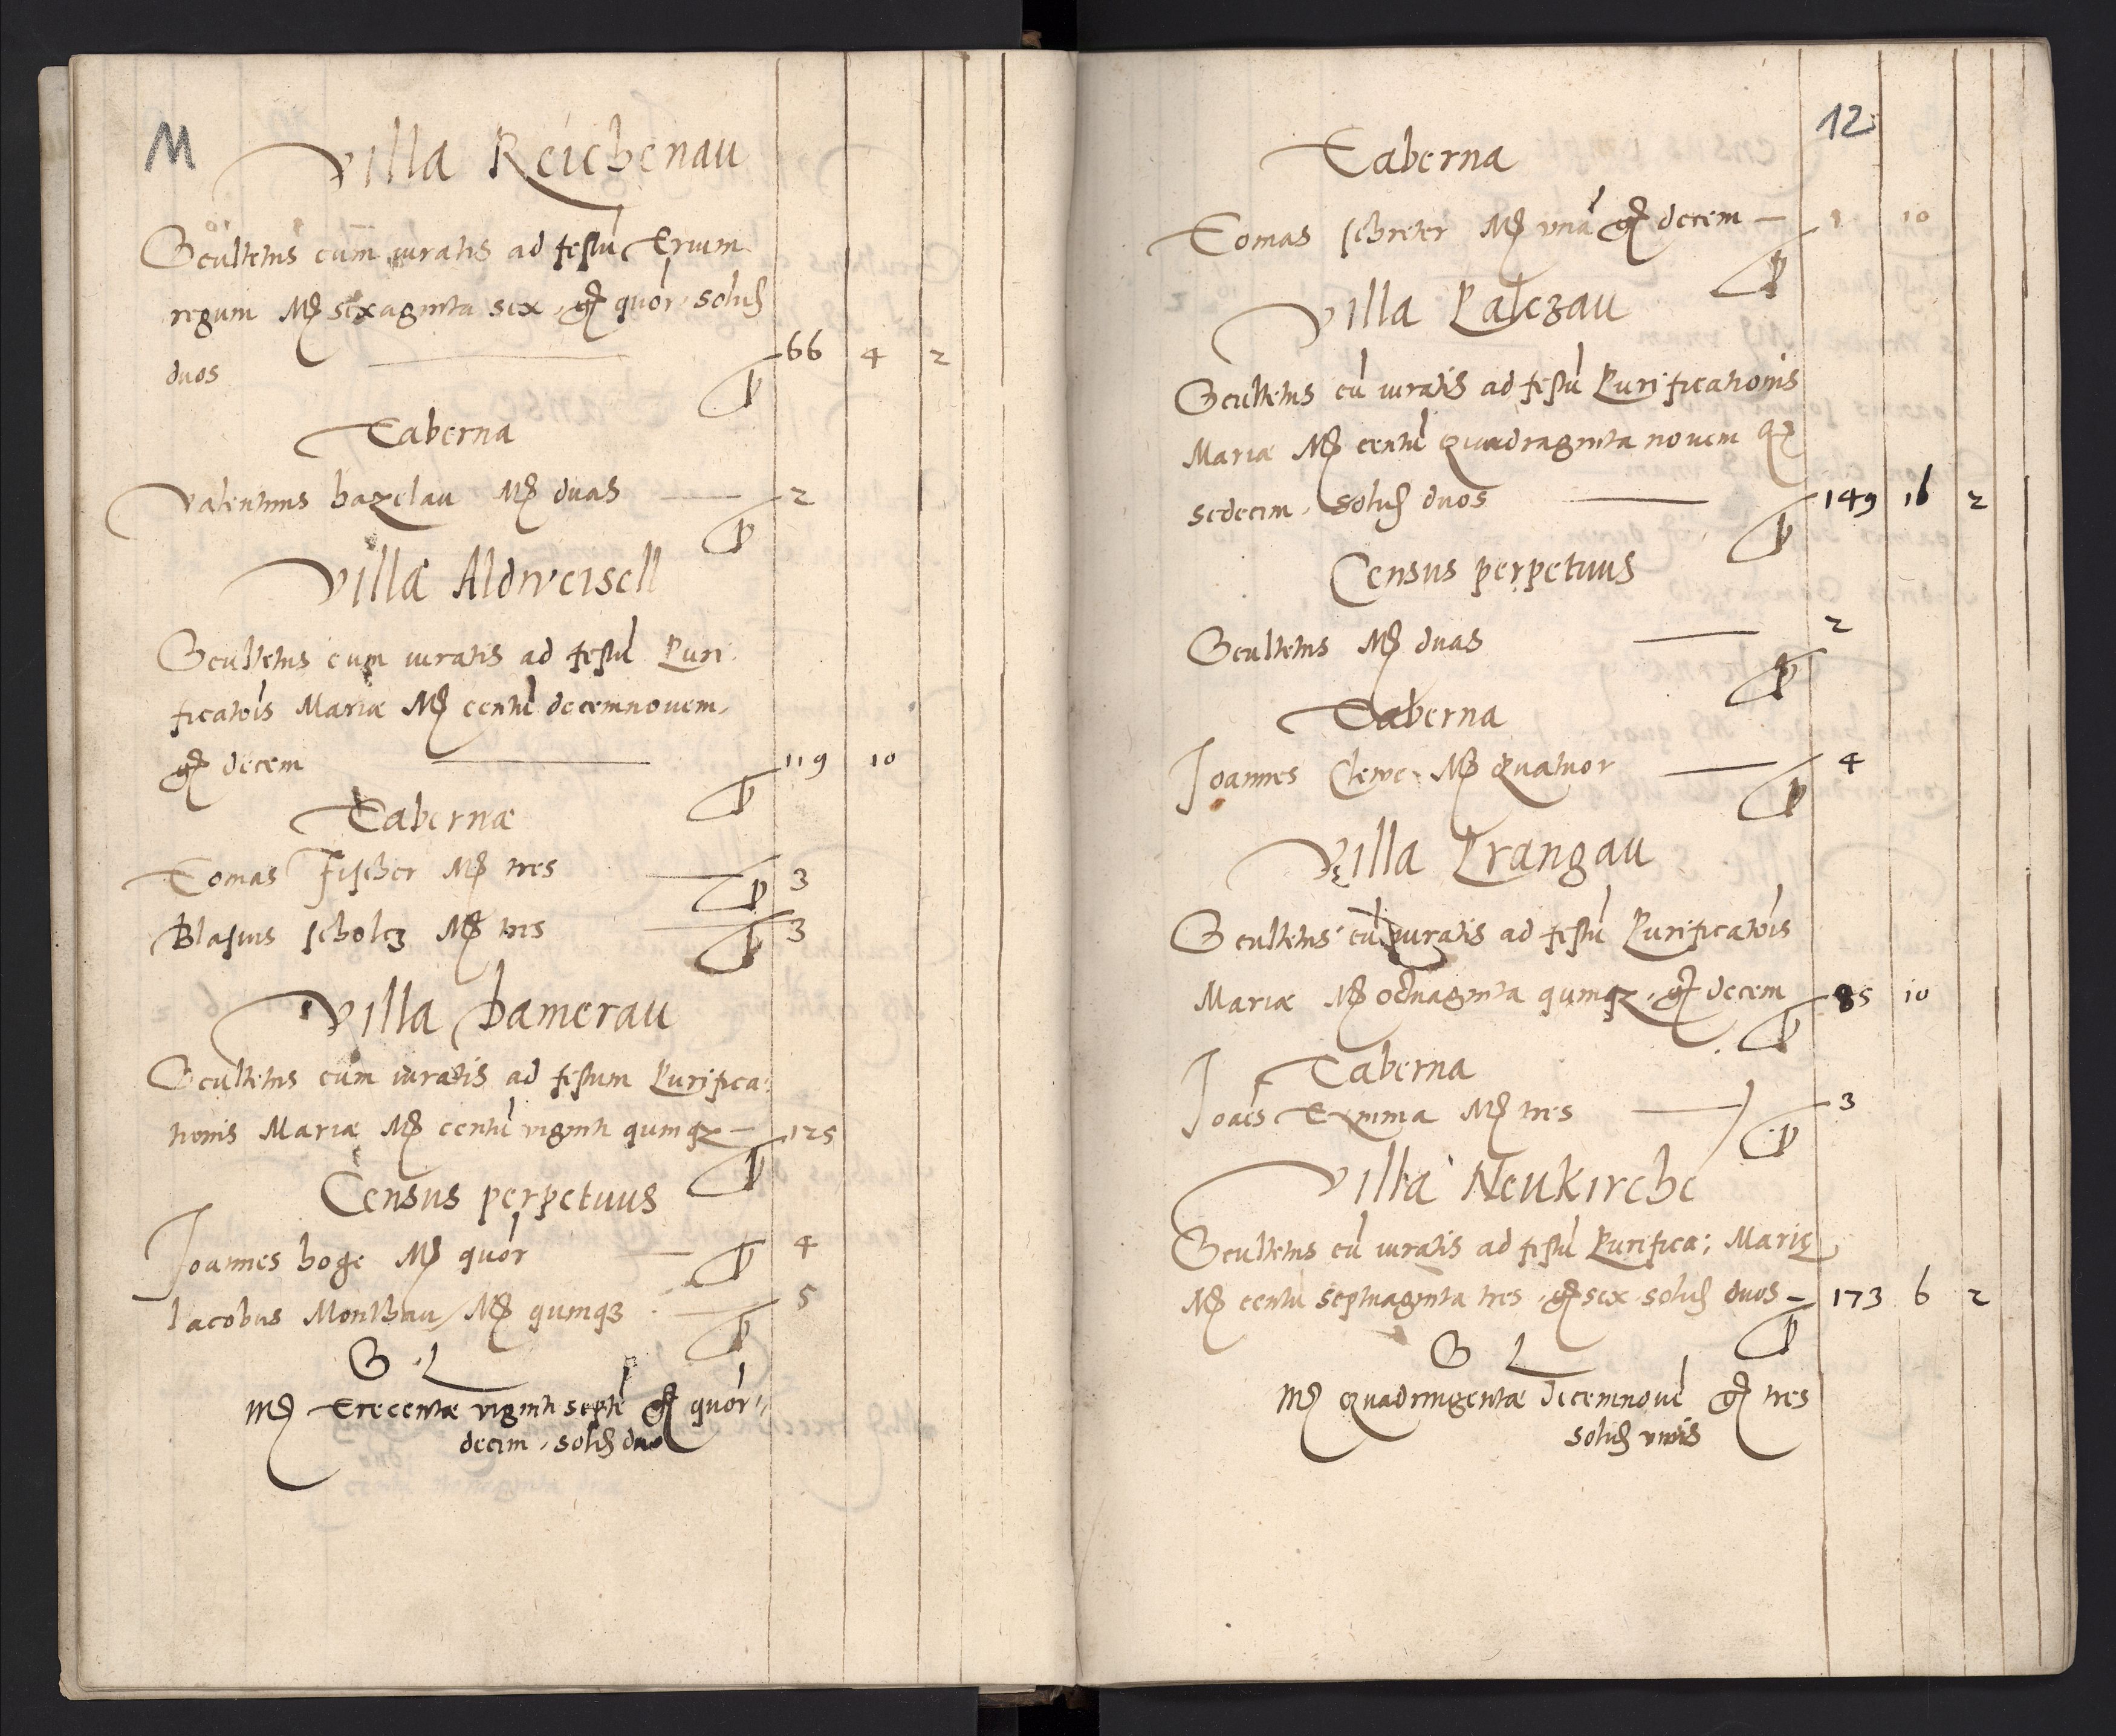 11
Villa Reichenau
Scultetus cum iuratis ad festu Trium
regum Mr sexaginta sex, gr quor, solid
duos 66 4 2
Taberna
Valentinus hazelau Mr duas 2
Villa Aldweisell
Scultetus cum iuratis ad festu Puri
ficatois Mariæ Mr centu decemnovem,
gr decem 119 10
Tabernæ
Tomas Fischer Mr tres 3
Blasius scholcz Mr tres 3
Villa Damerau
Scultetus cum iuratis ad festum Purifica:
tionis Mariæ Mr centu viginti quinqz 125
Census perpetuus
Joannes hoge Mr quor 4
Iacobus Monthau Mr quinqz 5
S L
Mr Trecentæ viginti septe gr quor
decim, solid duo
12
Taberna
Tomas schreter Mr una gr decem 1 10
Villa Palczau
Scultetus cu iuratis ad festu Purificationis
Mariæ Mr centu quadraginta novem gr
sedecim, solid duos 149 16 2
Census perpetuus
Scultetus Mr duas 2
Taberna
Joannes Clewe Mr quatuor 4
Villa Prangau
Scultetus cu iuratis ad festu Purificatois
Mariæ Mr octuaginta quinqz, gr decem 85 10
Taberna
Joaes Mr tres 3
Villa Neukirche
Scultetus cu iuratis ad festu Purifica: Mariæ
Mr centu septuaginta tres, gr sex solid duos 173 6 2
S L
Mr quadringentæ decemnove gr tres
solid unus